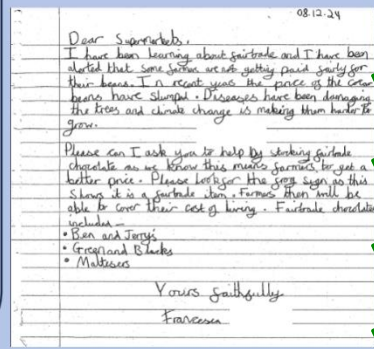 08.12.24
Dear Supermarkets,
I have been learning about fairtrade and I have been
alerted that some farmers are not getting paid fairly for
their beans. In recent years the price of the cocoa
beans have slumped. Diseases have been damaging
the trees and climate change is making them harder to
grow.
Please can I ask you to help by stocking fairtrade
chocolate as we know this means farmers, to get a
better price. Please look for the frog sign as this
shows it is a fairtrade item. Farmers then will be
able to cover their cost of living. Fairtrade chocolates
included -
• Ben and Jerry's
• Green and Blacks
• Maltesers
Yours faithfully
Francesca